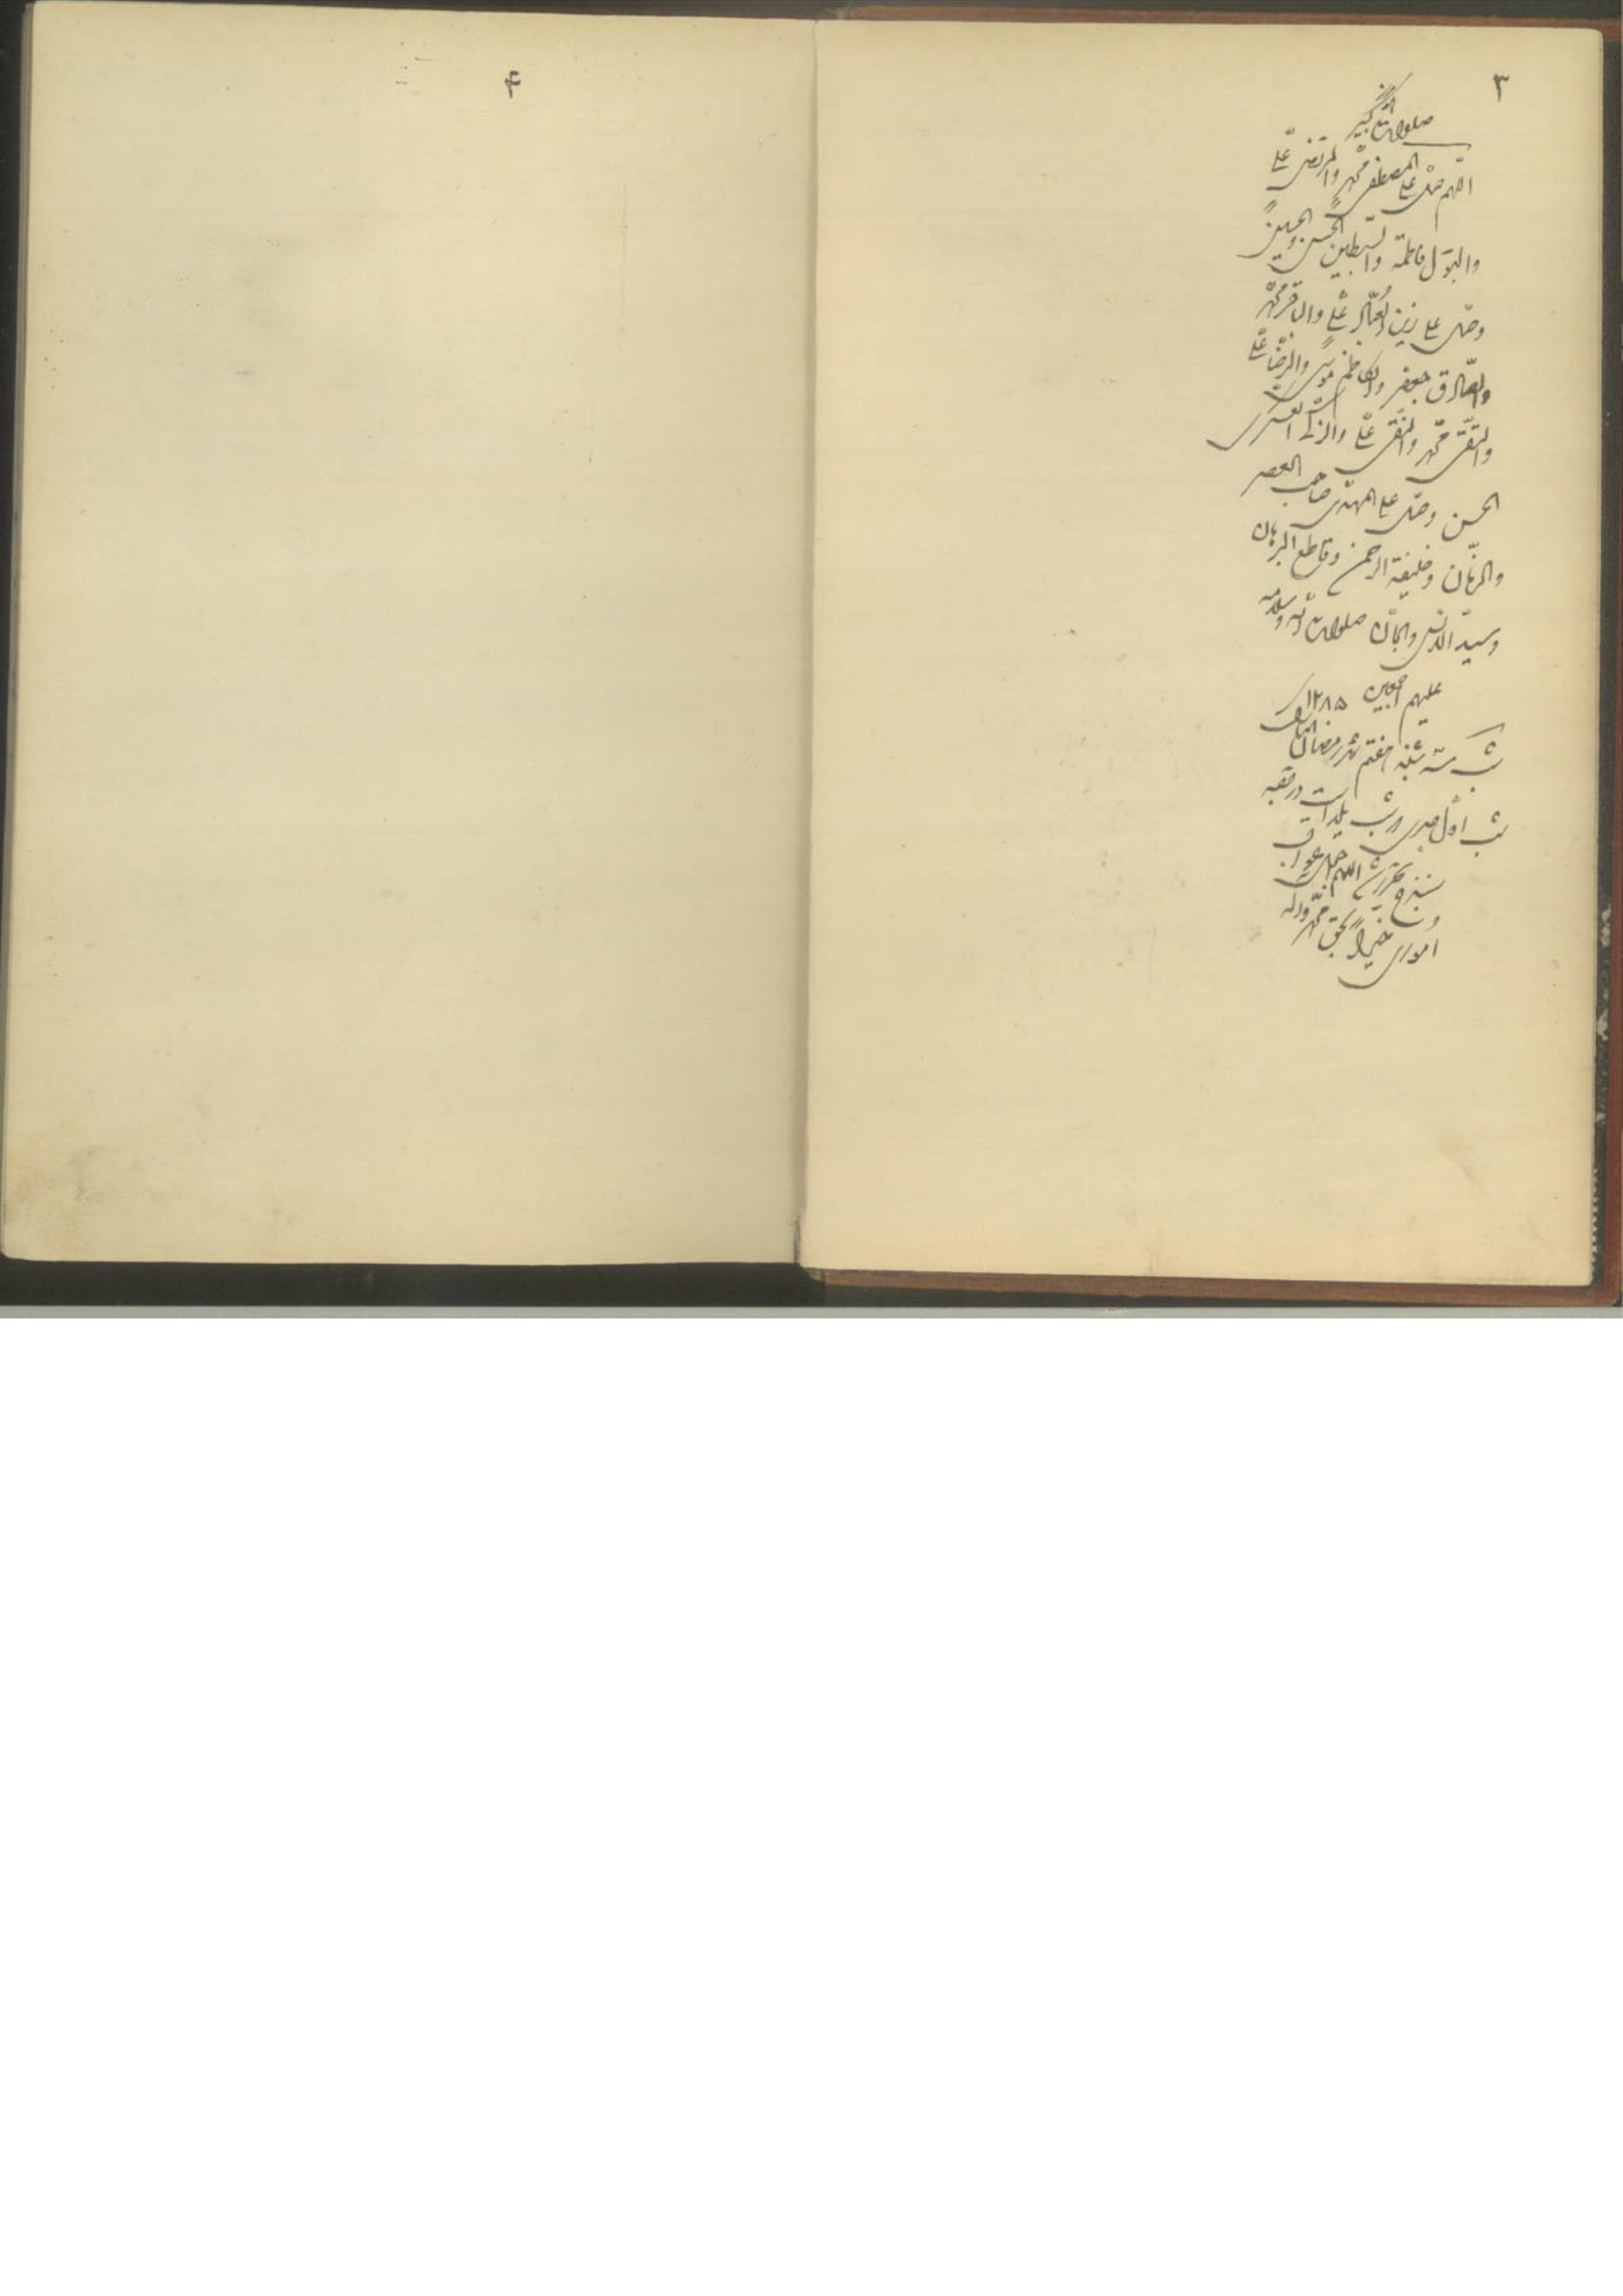 ۳
صلوات کبیر
اللهم صلّ علی المصطفی محمّد والمرتضی علیّ
والبتول فاطمة والسّبطین الحسن والحسین
وصلّ علی زین العبّاد علیّ والباقر محمّد
والصّادق جعفر والکاظم موسی والرّضا علیّ
والتقّی محمّد والنّقی علیّ والزکّی العسکری
الحسن وصلّ علی المهدی صاحب العصر
والزّمان وخلیفة الرحمن وقاطع البرهان
وسیّد الانس والجانّ صلوات الله وسلامه
علیهم اجمعین ۱۲۸۵
شب سه شنبه هفتم شهر رمضان المبارک
شب اوّل جدی و شب یلدا است در قصبه
سنندج تحریر شد اللهم اجعل عواقب
اموری خیراً بحق محمّد وآله
۴